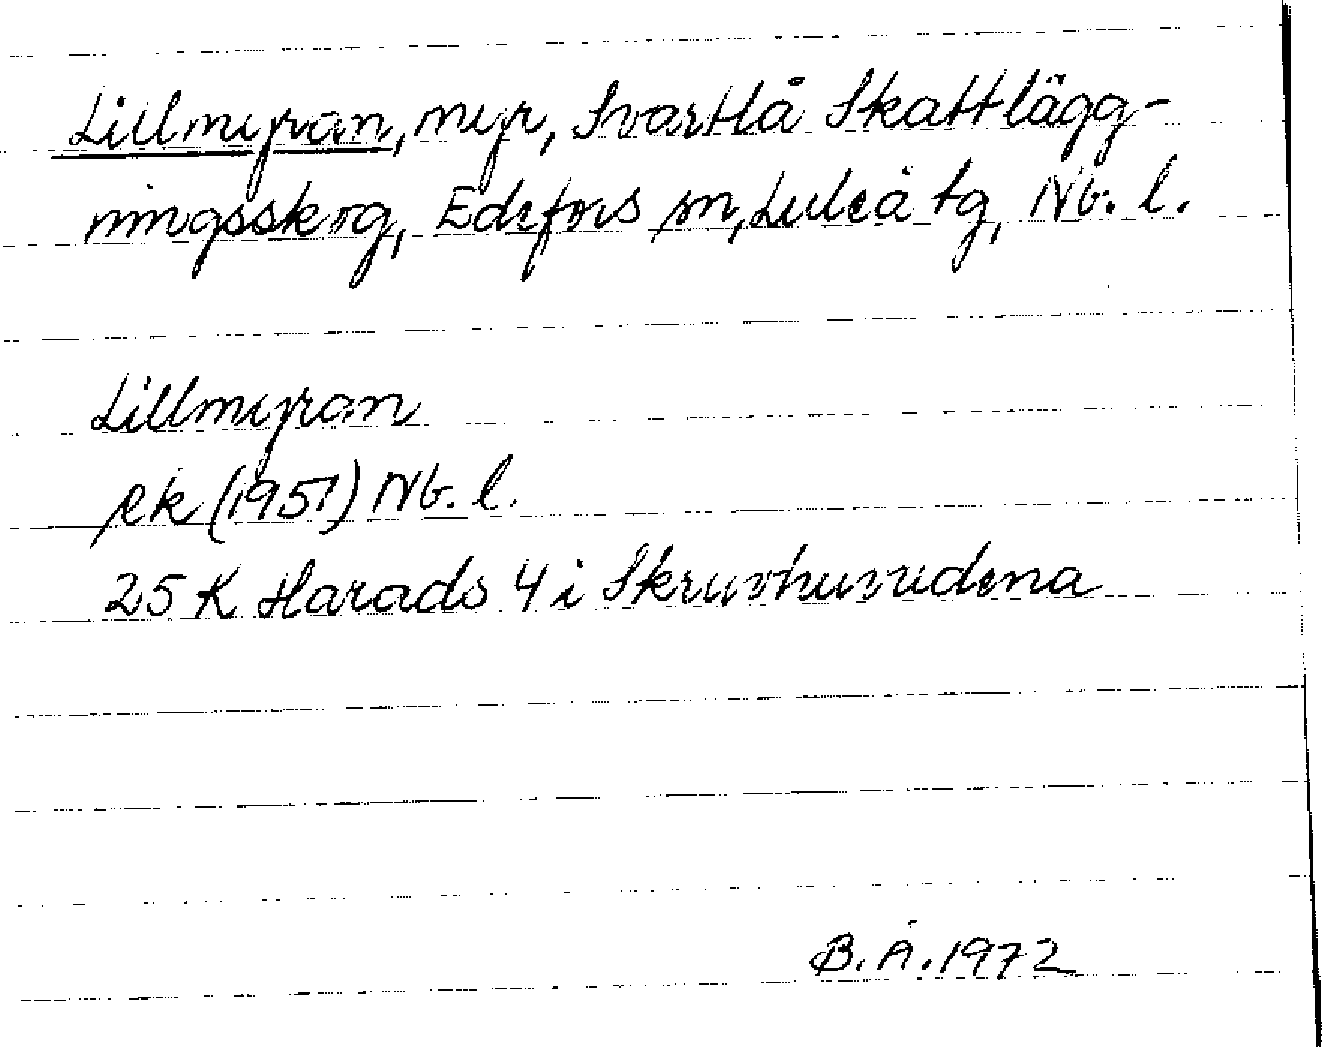 Lillmyran, myr, Svartlå Skattlägg-
ningsskog, Edefors sn, Luleå tg, Nb. l.
Lillmyran
Rk (1951) Nb. l.
25 K Harads 4 i Skruvhuvudena
B. Å. 1972